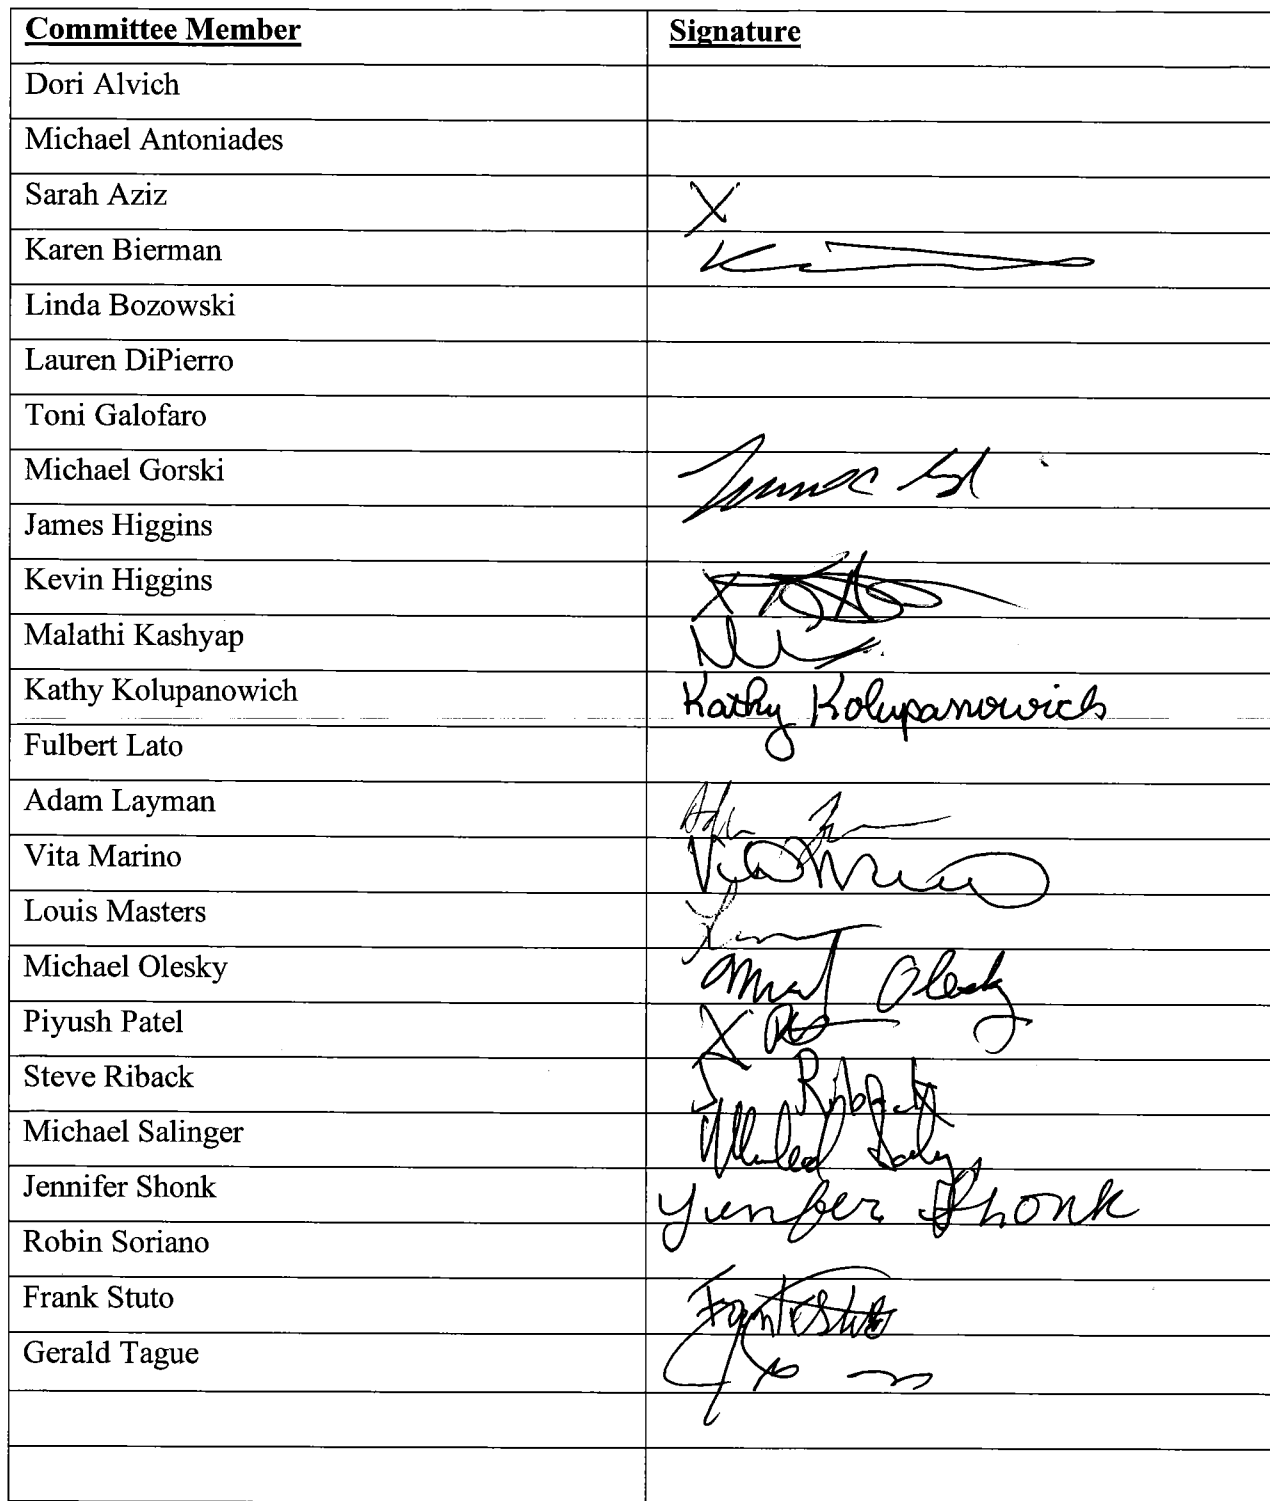 Committee Member Signature
Dori Alvich
Michael Antoniades
Sarah Aziz X
Karen Bierman
Linda Bozowski
Lauren DiPierro
Toni Galofaro
Michael Gorski
James Higgins
Kevin Higgins X
Malathi Kashyap
Kathy Kolupanowich Kathy Kolupanowich
Fulbert Lato
Adam Layman
Vita Marino
Louis Masters
Michael Olesky Olesky
Piyush Patel X
Steve Riback
Michael Salinger
Jennifer Shonk Shonk
Robin Soriano
Frank Stuto
Gerald Tague